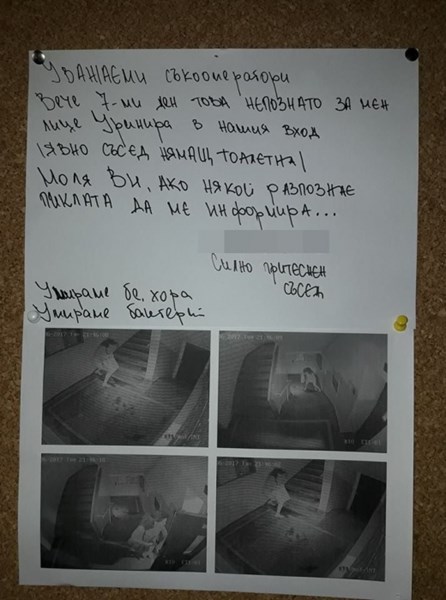 Уважаеми съкооператори
Вече 7-ми ден това непознато за мен
лице уринира в нашия вход
/явно съсед нямащ тоалетна/
Моля Ви, ако някой разпознае
пиклата да ме информира...
Силно притеснен
съсед
Умираме бе, хора
Умираме